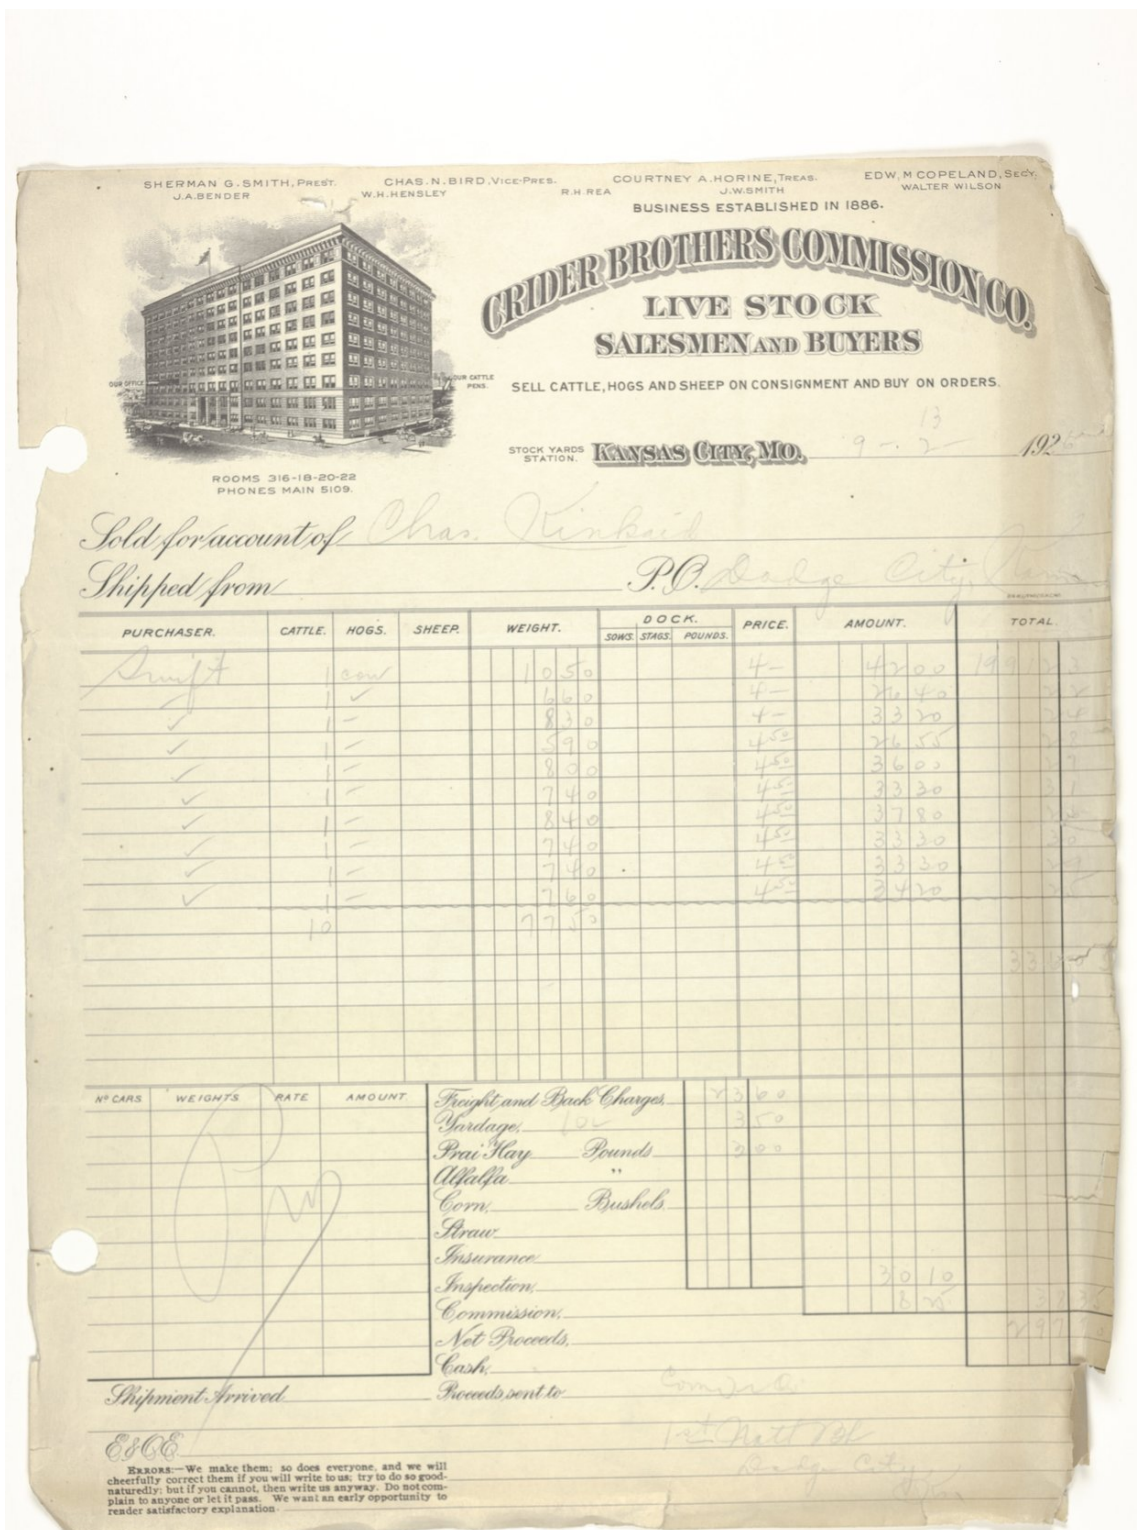 SHERMAN G. SMITH, PREST. CHAS. N. BIRD, VICE-PRES. COURTNEY A. HORINE, TREAS. EDW. M COPELAND, SEC'Y.
J.A. BENDER W.H. HENSLEY R.H. REA J.W. SMITH WALTER WILSON
BUSINESS ESTABLISHED IN 1886.
CRIDER BROTHERS COMMISSION CO.
LIVE STOCK
SALESMEN AND BUYERS
OUR OFFICE
OUR CATTLE PENS.
SELL CATTLE, HOGS AND SHEEP ON CONSIGNMENT AND BUY ON ORDERS.
13
STOCK YARDS STATION. KANSAS CITY, MO. 9 - 2 192
ROOMS 316-18-20-22
PHONES MAIN 5109.
Sold for account of Chas. Kinkaid
Shipped from P.O. Dodge City,
PURCHASER. CATTLE. HOGS. SHEEP. WEIGHT. DOCK. SOWS. STAGS. POUNDS. PRICE. AMOUNT. TOTAL.
Swift 1 cow 1050 4- 4200
✓ 1 ✓ 660 4- 2640
✓ 1 - 830 4- 3320
✓ 1 - 590 4 50 2655
✓ 1 - 800 4 50 3600
✓ 1 - 740 4 50 3330
✓ 1 - 840 4 50 3780
✓ 1 - 740 4 50 3330
✓ 1 - 740 4 50 3330
✓ 1 - 760 4 50 3420
10 7750
No CARS WEIGHTS RATE AMOUNT.
Freight and Back Charges, 2360
Yardage, 350
Prai Hay Pounds 300
Alfalfa "
Corn, Bushels
Straw
Insurance
Inspection, 3010
Commission, 825
Net Proceeds,
Cash,
Shipment Arrived Proceeds sent to
1st Natl Bk
Dodge City
E&OE
ERRORS:—We make them; so does everyone, and we will
cheerfully correct them if you will write to us; try to do so good-
naturedly; but if you cannot, then write us anyway. Do not com-
plain to anyone or let it pass. We want an early opportunity to
render satisfactory explanation